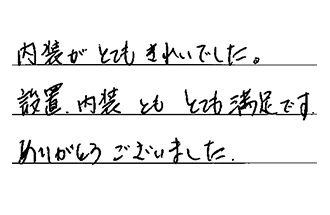 内装がとてもきれいでした。
設置、内装ともとても満足です.
ありがとうございました.